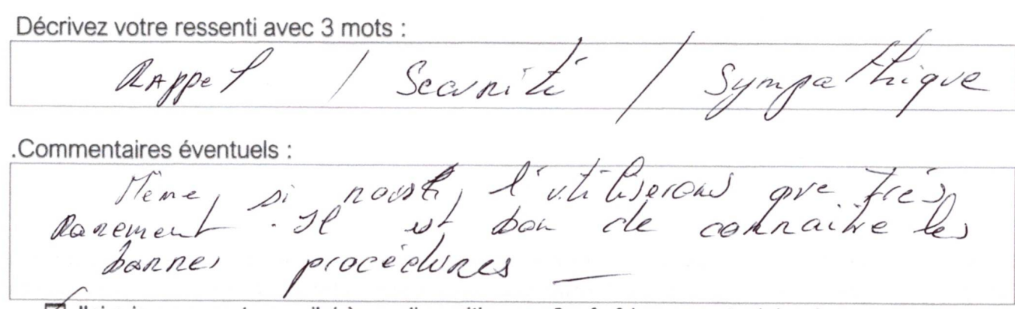 Décrivez votre ressenti avec 3 mots :
Rappel / Sécurité / Sympathique
.Commentaires éventuels :
Même si nous l'utiliserons que très
Rarement. Il est bon de connaitre les
bonnes procédures —